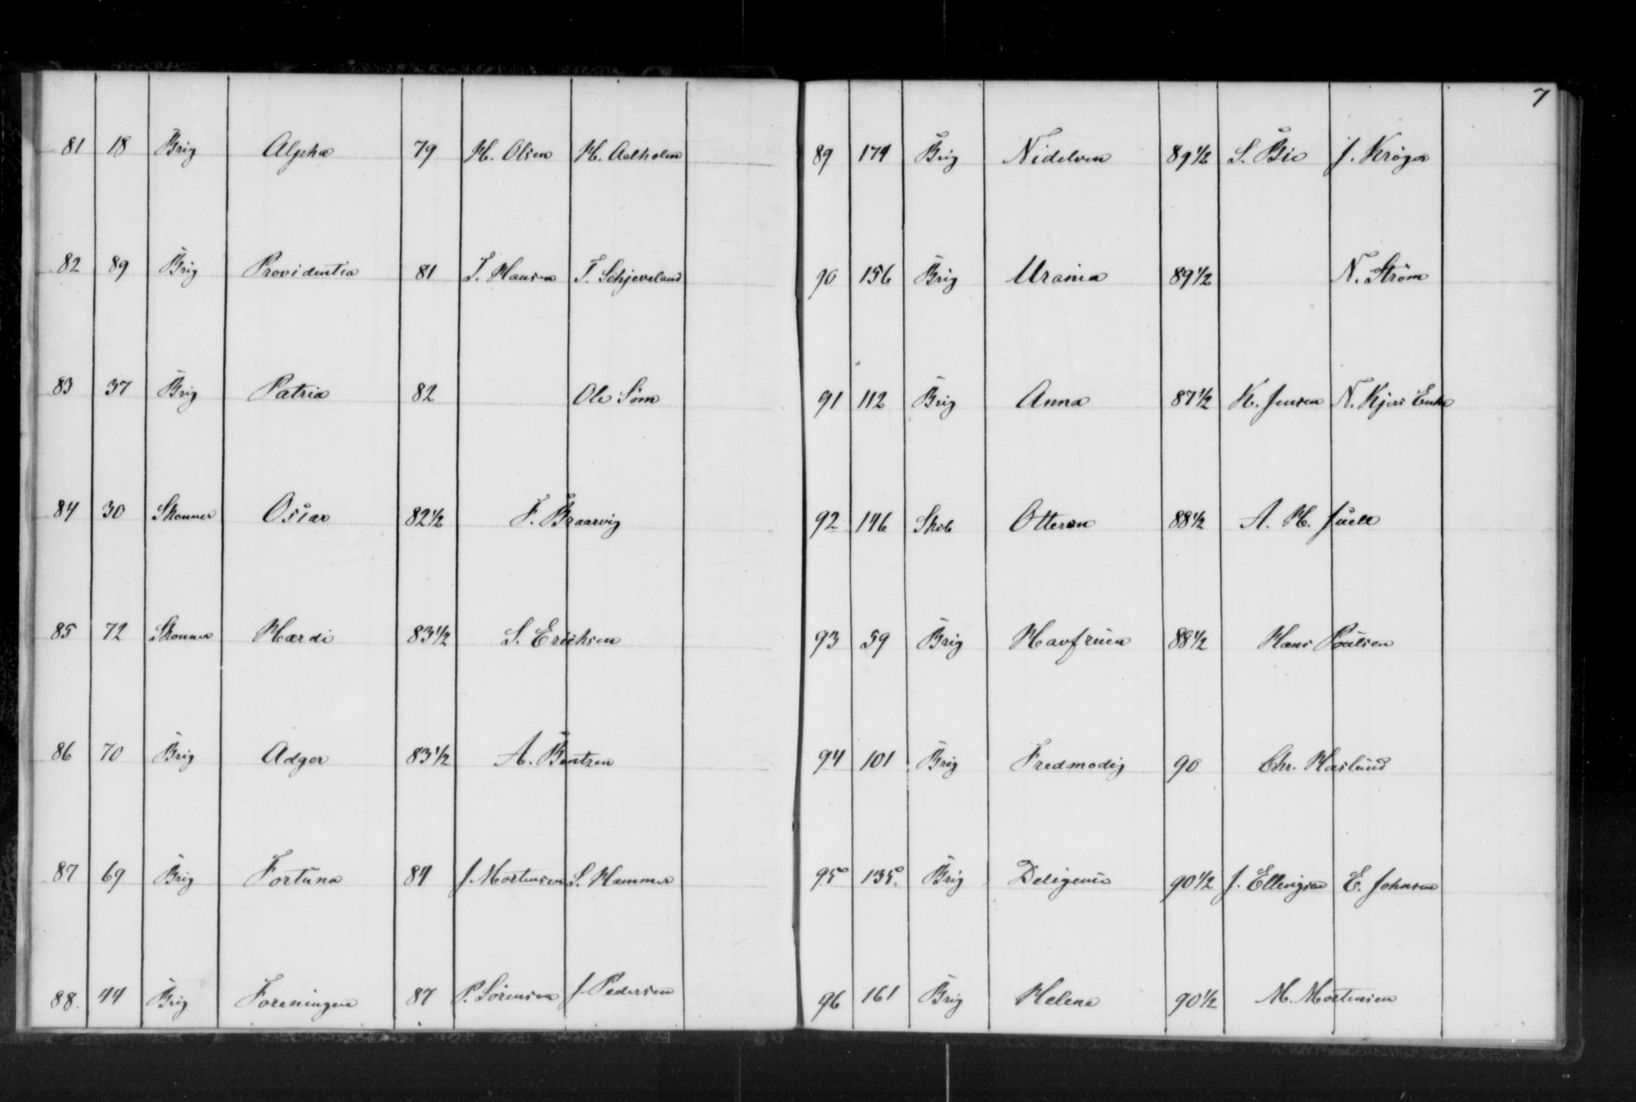 81 18 Brig Alpha 79 H. Olsen H. Aalholm
82 89 Brig Providentia 81 T. Hansen T. Schjeveland
83 37 Brig Patria 82 Ole Söm
84 30 Skonner Osiar 82½ F. Braarvig
85 72 Skonner Hardi 83½ S. Erichsen
86 70 Brig Adger 83½ A. Bentzen
87 69 Brig Fortuna 84 J. Mortensen S. Hammer
88. 44 Brig Foreningen 87 P. Sörensen J. Pedersen
7
89 174 Brig Nidelven 89½ S. Bie J. Kröger
90 156 Brig Urania 89½ N. Ström
91 112 Brig Anna 87½ H. Jensen N. Kjers Enke
92 146 Skib Otteren 88½ A. H. Juell
93 59 Brig Havfruen 88½ Hans Poulsen
94 101 Brig Fredmodig 90 Chr. Haslund
95 135. Brig 90½ J. Ellingsen E. Johnsen
96 161 Brig Helene 90½ M. Mortensen